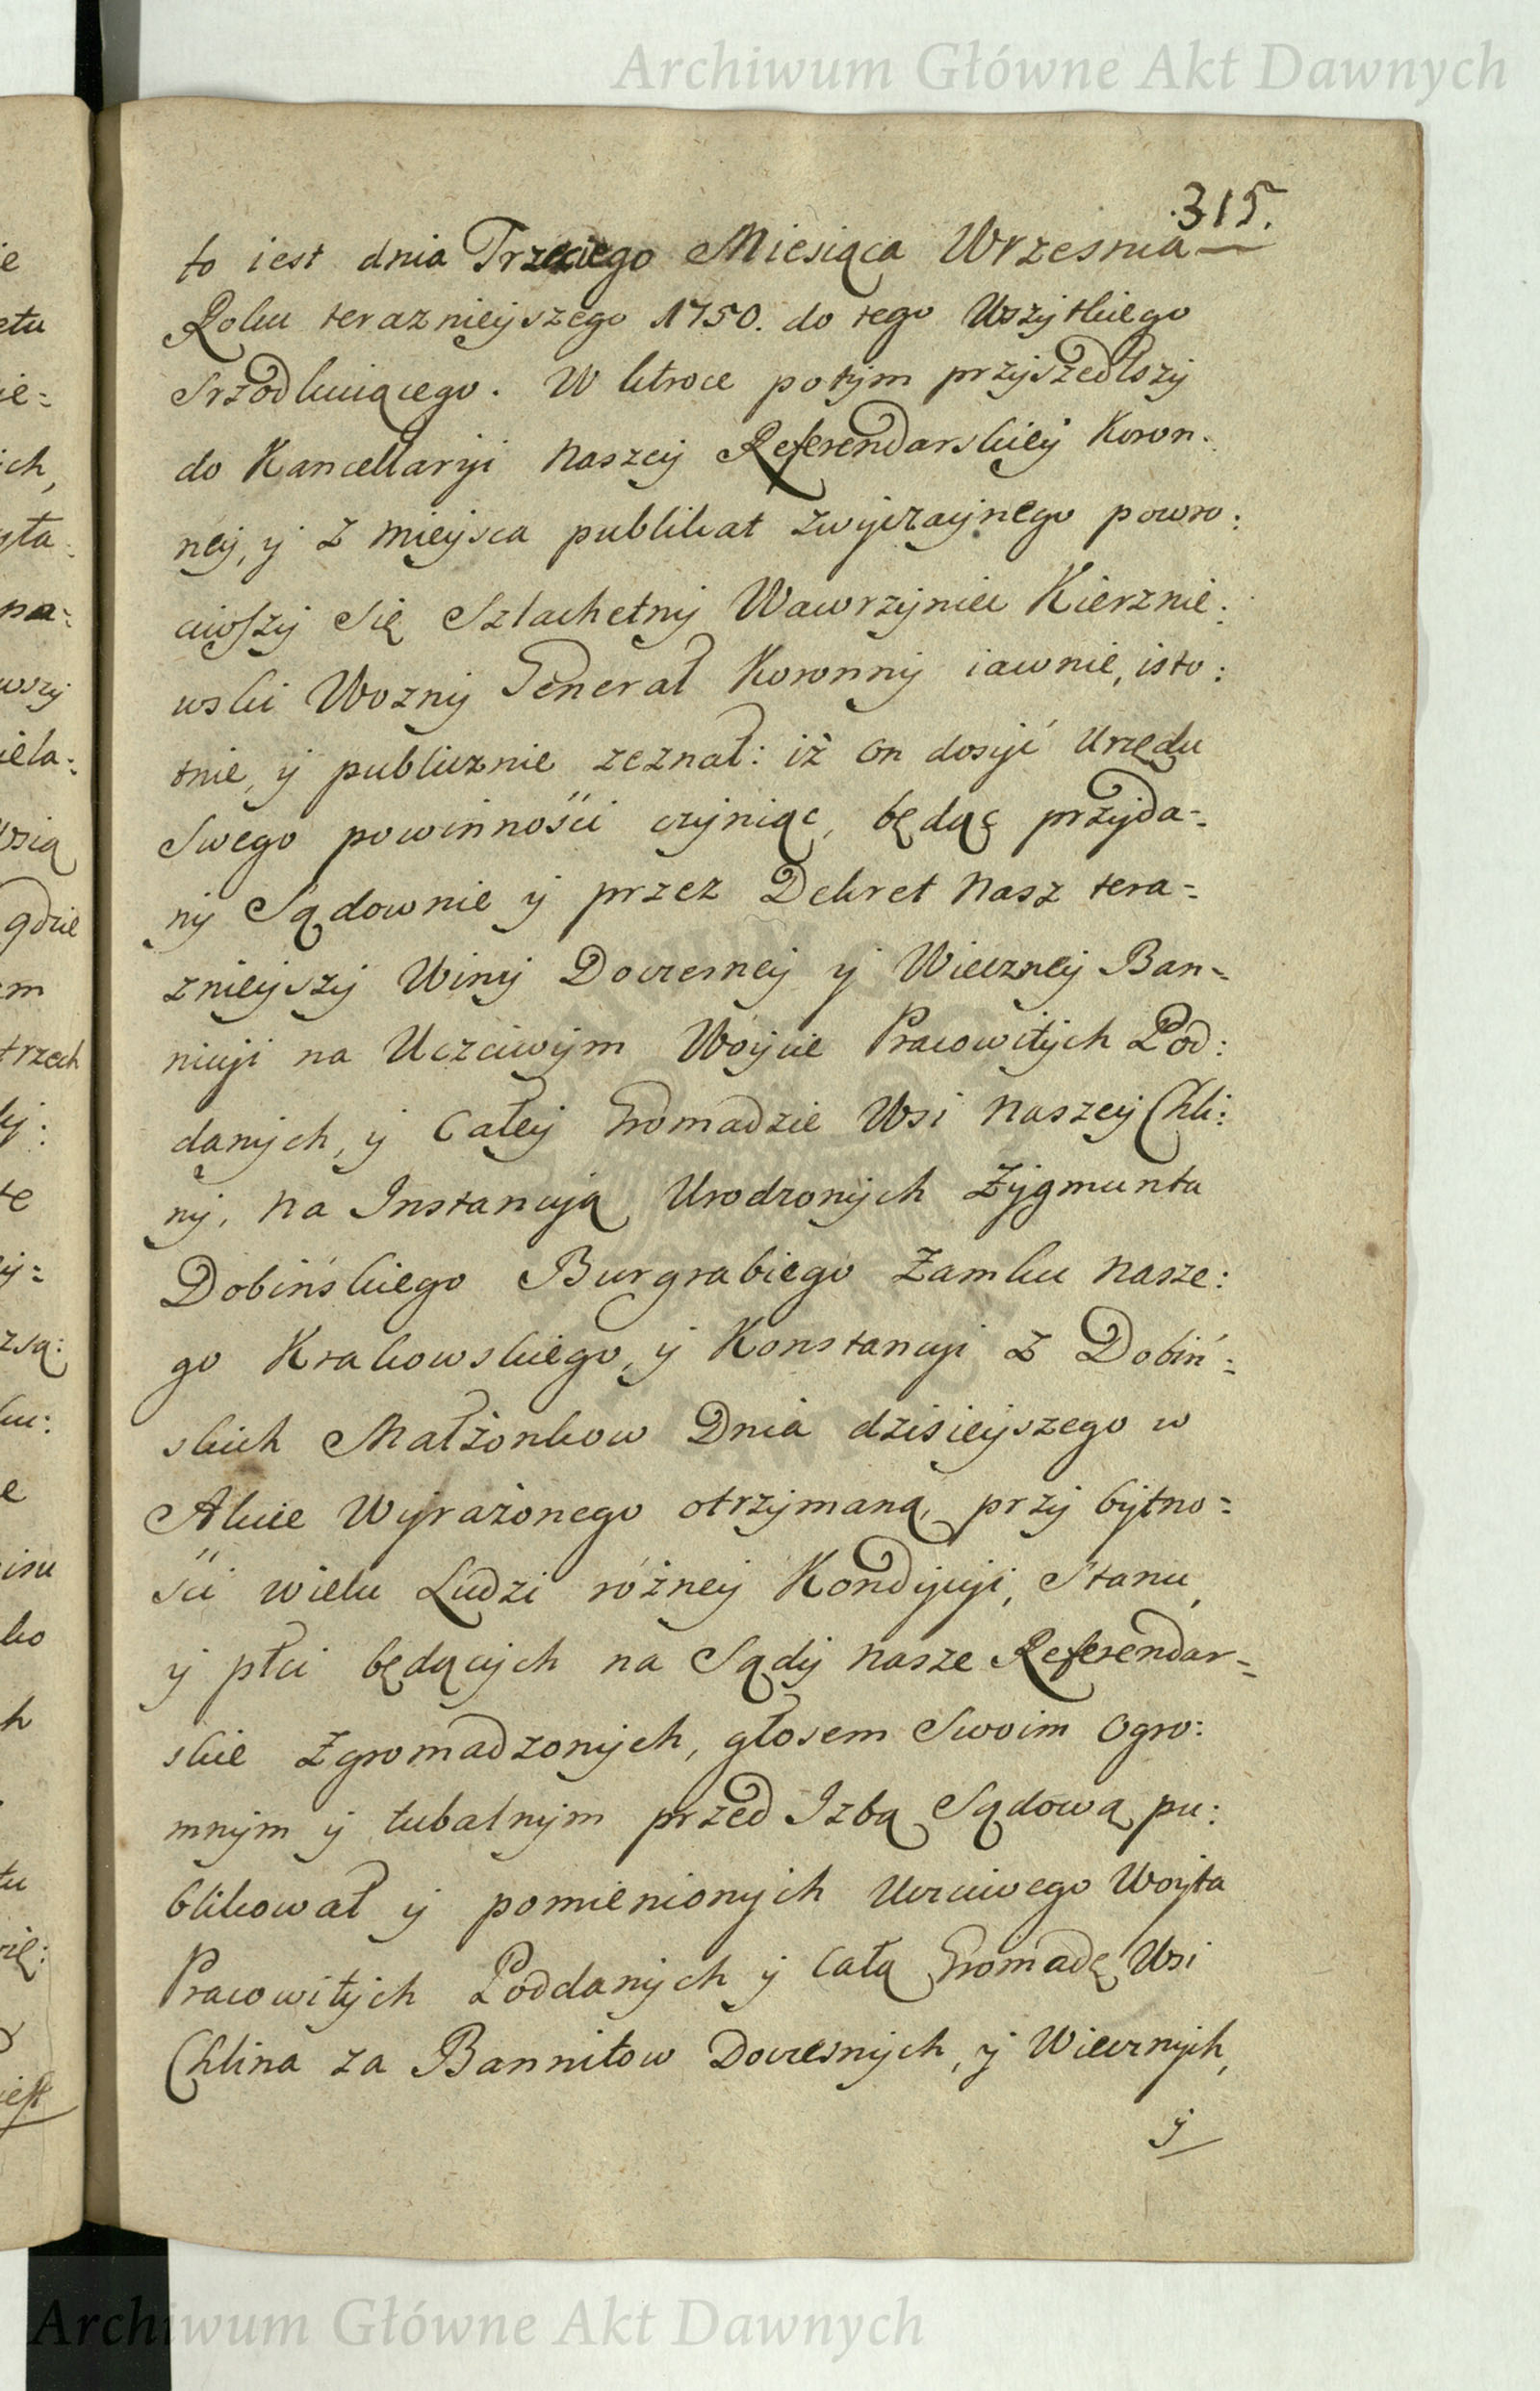 Archiwum Główne Akt Dawnych
315.
to iest dnia Trzeciego Miesiąca Wrzesnia
Roku teraznieyszego 1750. do tego Wszytkiego
srzodkuiącego. W ktroce potym przyszedłszy
do Kancellaryi Naszey Referendarskiey Koron:
ney, y z mieysca publikat zwyczaynego powro:
ciwszy się Szlachetny Wawrzyniec Kierznie:
wski Wozny Generał Koronny iawnie, isto:
tnie, y publicznie zeznał: iż on dosyć Urzędu
Swego powinności czyniąc, będąc przyda=
ny Sądownie y przez Dekret Nasz tera=
znieyszy Winy Doczesney y Wieczney Ban=
nicyi na Uczciwym Woycie Pracowitych Pod:
danych, y Całey Gromadzie Wsi Naszey Chli:
ny, na Instancyą Urodzonych Zygmunta
Dobińskiego Burgrabiego Zamku Nasze:
go Krakowskiego, y Konstancyi z Dobiń:
skich Małżonkow Dnia dzisieyszego w
Akcie Wyrażonego otrzymaną, przy bytno=
ści wielu Ludzi rożney Kondycyi, Stanu,
y płci będących na Sądy Nasze Referendar=
skie Zgromadzonych, głosem Swoim Ogro:
mnym y tubalnym przed Izbą Sądową pu:
blikował y pomienionych Uczciwego Woyta
Pracowitych Poddanych y Całą Gromadę Wsi
Chlina za Bannitow Doczesnych, y Wiecznych,
y
Archiwum Główne Akt Dawnych